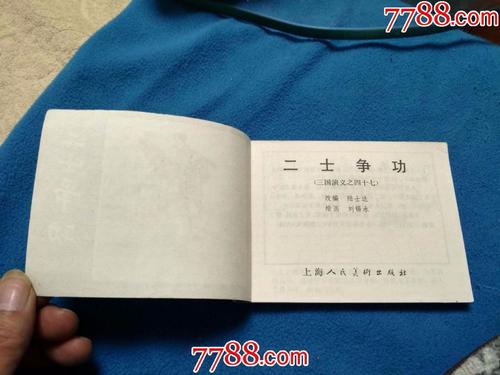 7788.com
二士争功
(三国演义之四十七)
改编 陆士达
绘画 刘锡永
上海人民美術出版社
7788.com